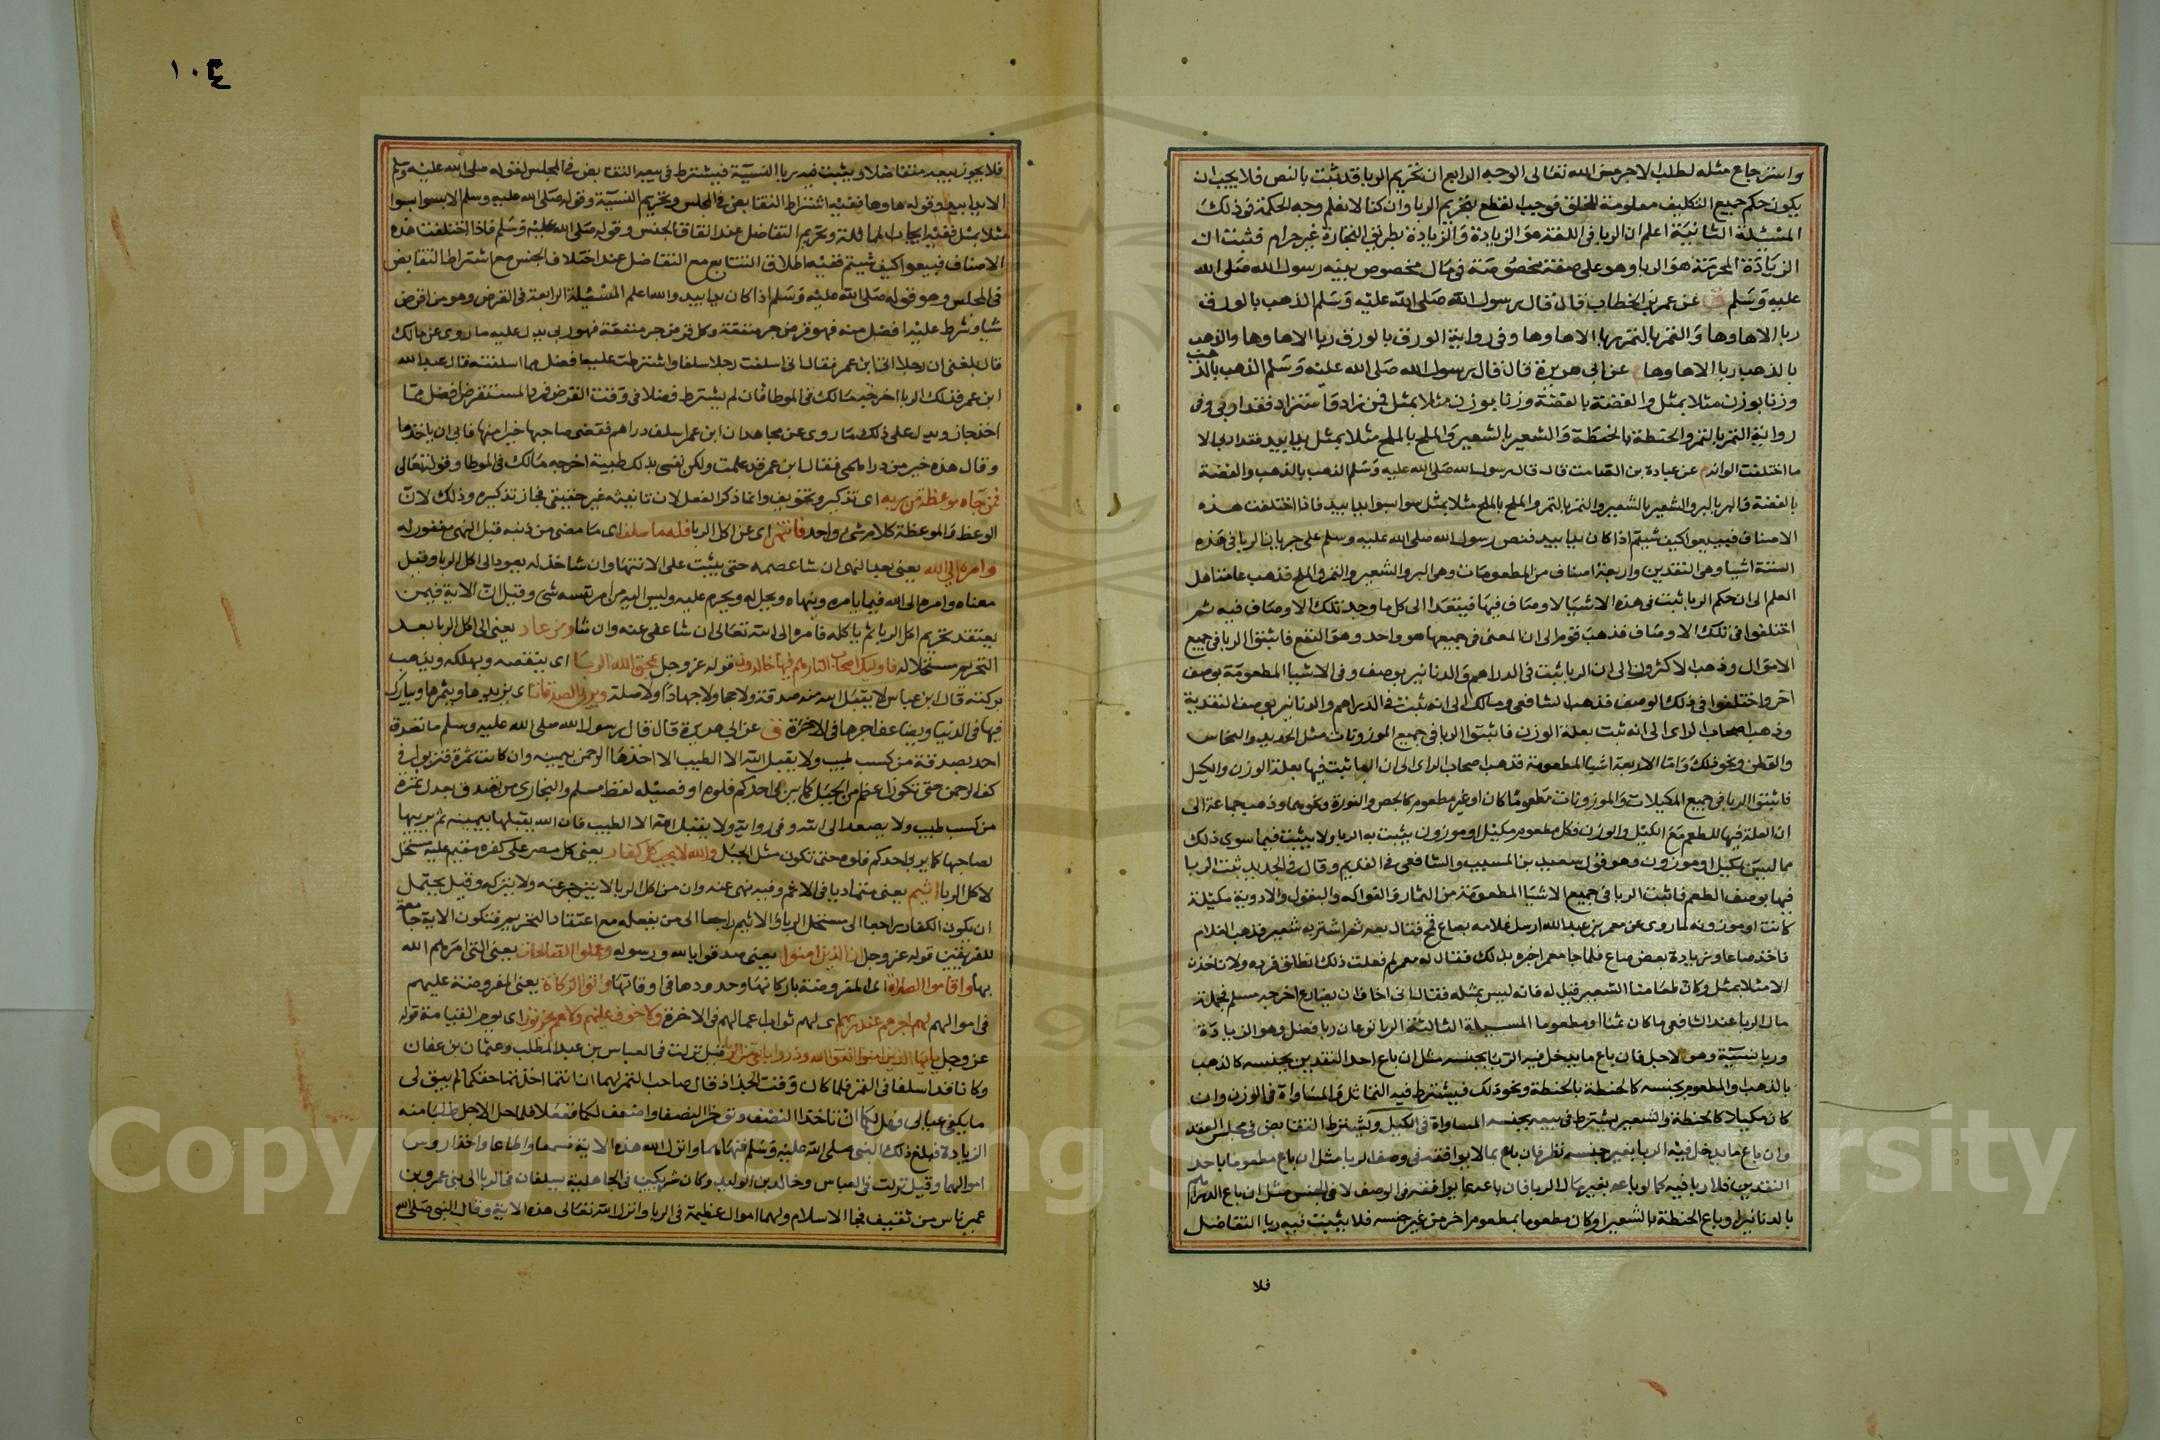 واسترجاع مثله لطلب الاجر من الله تعالى الوجه الرابع ان تحريم الربا قد ثبت بالنص فلا يجب ان
يكون حكم جميع التكليف معلومة للخلق فوجب القطع بتحريم الربا وان كنا لا نعلم وجه الحكمة في ذلك
المسئلة الثانية اعلم ان الربا في اللغة هو الزيادة والزيادة بطريق التجارة غير حرام فثبت ان
الزيادة المحرمة هو الربا وهو على صفة مخصوصة في مال مخصوص بينه رسول الله صلى الله
عليه وسلم ق عن عمر بن الخطاب قال قال رسول الله صلى الله عليه وسلم الذهب بالورق
ربا الا ها وها والتمر بالتمر ربا الا ها وها وفي رواية الورق بالورق ربا الا ها وها والذهب
بالذهب ربا الا ها وها عن ابي هريرة قال قال رسول الله صلى الله عليه وسلم الذهب بالذهب
وزنا بوزن مثلا بمثل والفضة بالفضة وزنا بوزن مثلا بمثل فمن زاد او استزاد فقد اربى وفي
رواية التمر بالتمر والحنطة بالحنطة والشعير بالشعير والملح بالملح مثلا بمثل يدا بيد فقد اربى الا
ما اختلفت الوانه م عن عبادة بن الصامت قال قال رسول الله صلى الله عليه وسلم الذهب بالذهب والفضة
بالفضة والبر بالبر والشعير بالشعير والتمر بالتمر والملح بالملح مثلا بمثل سوا بسوا يدا بيد فاذا اختلفت هذه
الاصناف فبيعوا كيف شيتم اذا كان يدا بيد فنص رسول الله صلى الله عليه وسلم على جريان الربا في هذه
الستة اشيا وهي النقدين واربعة اصناف من المطعومات وهي البر والشعير والتمر والملح فذهب عامة اهل
العلم الى ان حكم الربا ثبت في هذه الاشيا لاوصاف فيها فيتعدا الى كل ما وجد تلك الاوصاف فيه ثم
اختلفوا في تلك الاوصاف فذهب قوم الى ان المعنى في جميعها هو واحد وهو النفع فاثبتوا الربا في جميع
الاموال وذهب الاكثرون الى ان الربا ثبت في الدراهم والدنانير بوصف وفي الاشيا المطعومة بوصف
اخر واختلفوا في ذلك الوصف فذهب الشافعي ومالك الى انه ثبت في الدراهم والدنانير بوصف النقدية
وذهب اصحاب الراى الى انه ثبت بعلة الوزن فاثبتوا الربا في جميع الموزونات مثل الحديد والنحاس
والقطن ونحو ذلك واما الاربعة اشيا المطعومة فذهب اصحاب الراى الى ان الربا ثبت فيها بعلة الوزن والكيل
فاثبتوا الربا في جميع المكيلات والموزونات مطعوما كان او غير مطعوم كالجص والنورة ونحوهما وذهب جماعة الى
ان العلة فيها للطعم مع الكيل والوزن فكل مطعوم مكيل او موزون يثبت به الربا ولا يثبت فيما سوى ذلك
مما ليس بمكيل او موزون وهو قول سعيد بن المسيب والشافعي في القديم وقال في الجديد ثبت الربا
فيها بوصف الطعم فاثبت الربا في جميع الاشيا المطعومة من الثمار والفواكه والبقول والادوية مكيلة
كانت او موزونة لما روى عن معمر بن عبد الله ارسل غلامه بصاع قمح فقال بعه ثم اشتر به شعير فذهب الغلام
فاخذ صاعا وزيادة بعض صاع فلما جا معمر اخبره بذلك فقال له معمر لم فعلت ذلك انطلق فرده ولا تاخذن
الا مثلا بمثل وكان طعامنا الشعير قيل له فانه ليس بمثله فقال انى اخاف ان يضارع اخرجه مسلم فجملة
مال الربا عند الشافعي ما كان ثمنا او مطعوما المسيلة الثالثة الربا نوعان ربا فضل وهو الزيادة
وربا نسيية وهو لاجل فان باع ما يدخل فيه الربا بجنسه مثل ان باع احد النقدين بجنسه كالذهب
بالذهب والمطعوم بجنسه كالحنطة بالحنطة ونحو ذلك فيشترط فيه التماثل والمساواة في الوزن وان
كان مكيلا كالحنطة والشعير يشترط في بيعه بجنسه المساواة في الكيل ويشترط التقابض في مجلس العقد
وان باع ما يدخل فيه الربا بغير جنسه نظر فان باع بما لا يوافقه في وصف الربا مثل ان باع مطعوما باحد
النقدين فلا ربا فيه كما لو باعه بغير مال الربا فان باعه بما يوافقه في الوصف لا في الجنس مثل ان باع الدراهم
بالدنانير او باع الحنطة بالشعير او كان مطعوما بمطعوم اخر من غير جنسه فلا يثبت فيه ربا التفاضل
فلا
١٠٤
فلا يجوز بيعه متفاضلا ويثبت فيه ربا النسيية فيشترط في بيعه التقابض في المجلس لقوله صلى الله عليه وسلم
الا يدا بيد وقوله ها وها ففيه اشتراط التقابض في المجلس وتحريم النسيية وقوله صلى الله عليه وسلم الا سوا بسوا
مثلا بمثل ففيه ايجاب المماثلة وتحريم التفاضل عند اتفاق الجنس وقوله صلى الله عليه وسلم فاذا اختلفت هذه
الاصناف فبيعوا كيف شيتم ففيه اطلاق التبايع مع التفاضل عند اختلاف الجنس مع اشتراط التقابض
في المجلس وهو قوله صلى الله عليه وسلم اذا كان يدا بيد والله اعلم المسئلة الرابعة في القرض وهو من اقرض
شيا وشرط عليه افضل منه فهو قرض جر منفعة وكل قرض جر منفعة فهو ربى يدل عليه ما روى عن مالك
قال بلغنى ان رجلا اتى ابن عمر فقال انى اسلفت رجلا سلفا واشترطت عليه افضل مما اسلفته قال عبد الله
ابن عمر فذلك الربا اخرجه مالك في الموطا فان لم يشترط فضلا في وقت القرض فرد المستقرض افضل مما
اخذ جاز ويدل على ذلك ما روى عن مجاهد ان ابن عمر استسلف دراهم فقضى صاحبها خيرا منها فابى ان ياخذها
وقال هذه خير من دراهمى فقال ابن عمر قد علمت ولكن نفسى بذلك طيبة اخرجه مالك في الموطا وقوله تعالى
فمن جاه موعظة من ربه اى تذكير وتخويف وانما ذكر الفعل لان تانيثه غير حقيقي فجاز تذكيره وذلك لان
الوعظ والموعظة كلام شى واحد فانتهى اى عن اكل الربا فله ما سلف اى ما مضى من ذنبه قبل النهى مغفور له
وامره الى الله يعنى بعد النهى ان شا عصمه حتى يثبت على الانتها وان شا خذله يعود الى اكل الربا وقيل
معناه وامره الى الله فيما يامره وينهاه ويحل له ويحرم عليه وليس اليه من امر نفسه شى وقيل ان الاية فيمن
يعتقد تحريم اكل الربا ثم ياكله فامره الى الله تعالى ان شا عفى عنه وان شا ومن عاد يعنى الى اكل الربا بعد
التحريم مستحلا له فاوليك اصحاب النار هم فيها خالدون قوله عز وجل يمحق الله الربا اى ينقصه ويهلكه ويذهب
بركته قال بن عباس لا يقبل الله منه صدقة ولا حجا ولا جهادا ولا صلة ويربى الصدقات اى يزيدها ويثمرها ويبارك
فيها في الدنيا ويضاعف اجرها في الاخرة ق عن ابي هريرة قال قال رسول الله صلى الله عليه وسلم ما تصدق
احد بصدقة من كسب طيب ولا يقبل الله الا الطيب الا اخذها الرحمن بيمينه وان كانت تمرة فتربوا في
كف الرحمن حتى تكون اعظم من الجبل كما يربى احدكم فلوه او فصيله لفظ مسلم والبخارى من تصدق بعدل تمرة
من كسب طيب ولا يصعد الى الله وفي رواية ولا يقبل الله الا الطيب فان الله يقبلها بيمينه ثم يربيها
لصاحبها كما يربى احدكم فلوه حتى تكون مثل الجبل والله لا يحب كل كفار يعنى كل مصر على كفره مقيم عليه مستحل
لاكل الربا اثيم يعنى متماديا في الاثم وفيه نهى عنه وان من اكل الربا لا ينزجر عنه ولا يتركه وقيل يحتمل
ان يكون الكفار راجعا الى مستحل الربا والاثيم راجعا الى من يفعله مع اعتقاد التحريم فتكون الاية جامعة
للفريقين قوله عز وجل ان الذين امنوا يعنى صدقوا بالله ورسوله وعملوا الصالحات يعنى التى امرهم الله
بها واقاموا الصلاة اى المفروضة باركانها وحدودها في اوقاتها واتوا الزكاة يعنى المفروضة عليهم
في اموالهم لهم اجرهم عند ربهم اى لهم ثواب اعمالهم في الاخرة ولا خوف عليهم ولا هم يحزنون اى يوم القيامة قوله
عز وجل يا ايها الذين امنوا اتقوا الله وذروا ما بقى من الربا قيل نزلت في العباس بن عبد المطلب وعثمان بن عفان
وكانا قد اسلفا في التمر فلما كان وقت الجذاذ قال صاحب التمر لهما ان انتما اخذتما حقكما لم يبق لى
ما يكفى عيالى فهل لكما ان تاخذا النصف وتوخرا النصف واضعف لكما ففعلا فلما حل الاجل طلبا منه
الزيادة فبلغ ذلك النبى صلى الله عليه وسلم فنهاهما وانزل الله هذه الاية فسمعا واطاعا واخذا روس
اموالهما وقيل نزلت في العباس وخالد بن الوليد وكان شريكين في الجاهلية يسلفان في الربا الى بنى عمرو بن
عمير ناس من ثقيف فجا الاسلام ولهما اموال عظيمة في الربا وانزل الله تعالى هذه الاية وقال النبى صلى الله